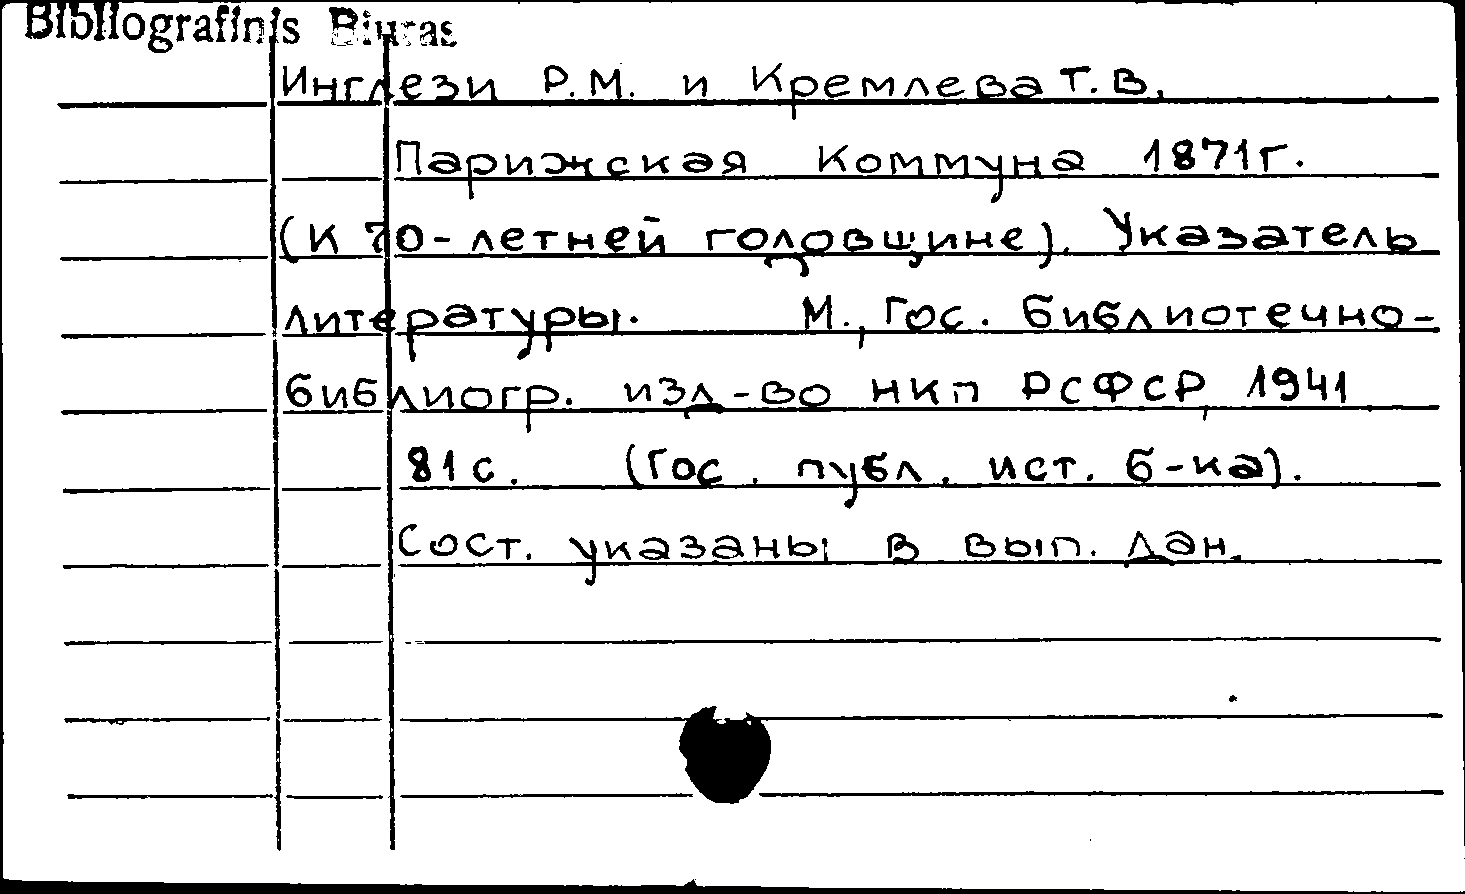 Bibliografinis Biuras
Инглези Р.М. и Кремлева Т.В.
Парижская Коммуна 1871г.
(К 70-летней годовщине). Указатель
литературы. М., Гос. библиотечно-
библиогр. изд-во НКП РСФСР, 1941
81с. (Гос. публ. ист. б-ка).
Сост. указаны в вып. дан.